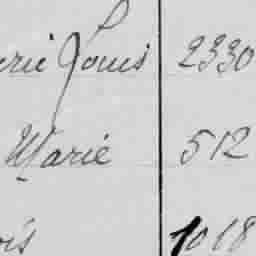 erie Louis 2330
Marie 512
ois 1018